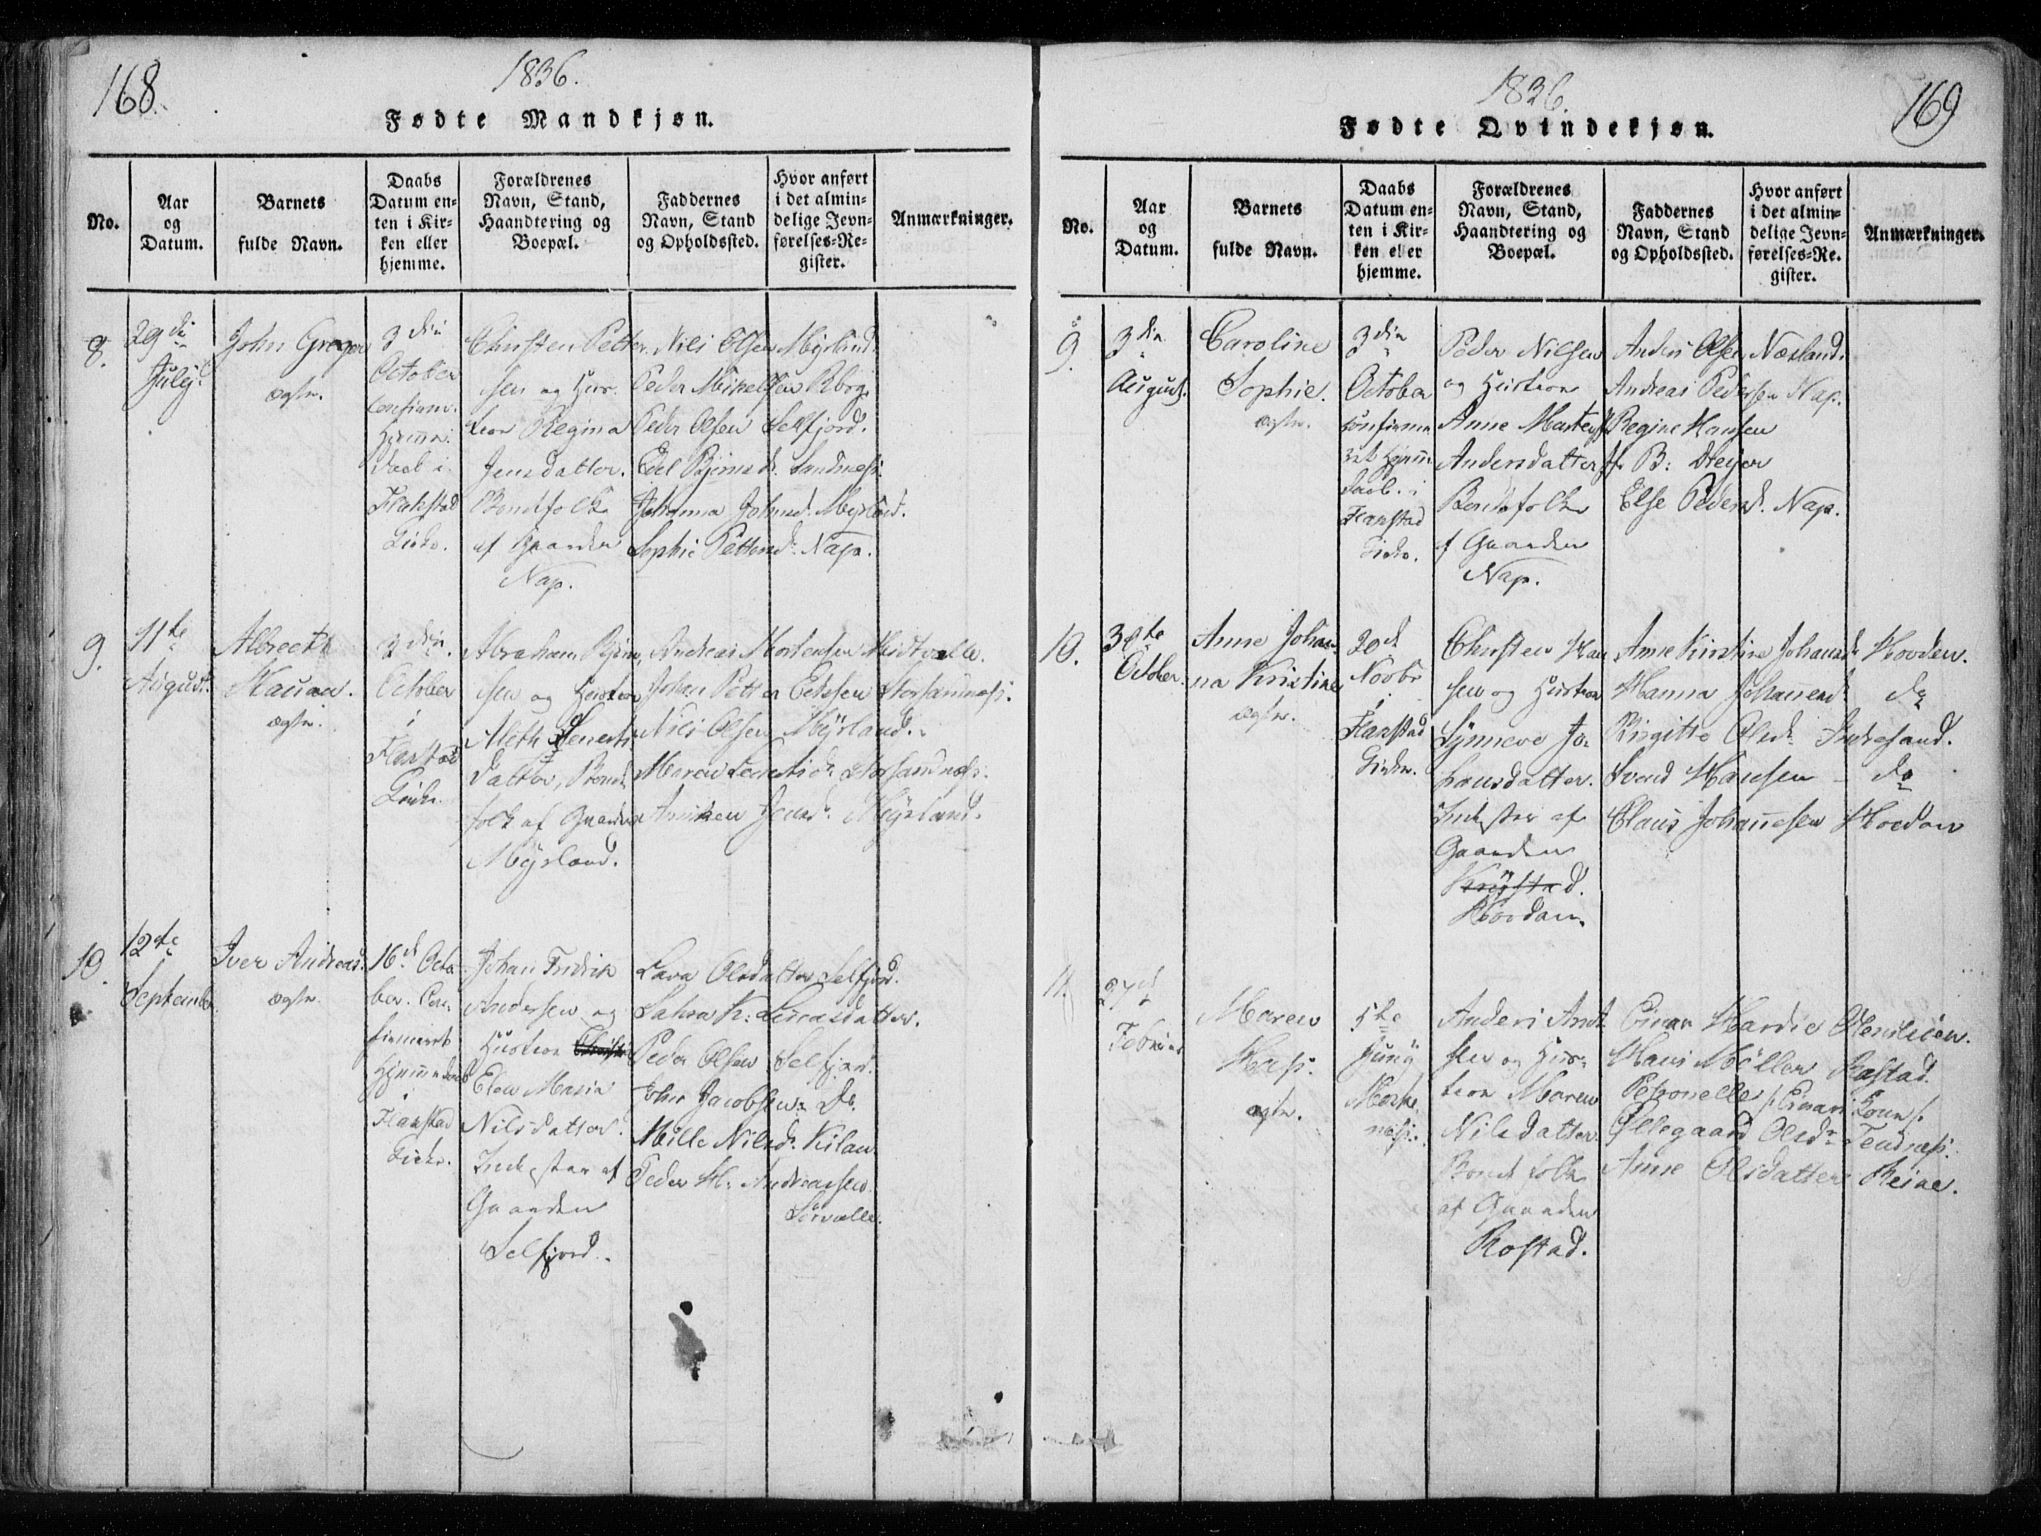 168.
1836.
Fødte Mandkjøn.
No.
Aar
og
Datum.
Barnets
fulde Navn.
Daabs
Datum en-
ten i Kir-
ken eller
hjemme.
Forældrenes
Navn, Stand,
Haandtering og
Boepæl.
Faddernes
Navn, Stand
og Opholdssted.
Hvor anført
i det almin-
delige Jevn-
førelses-Re-
gister.
Anmærkninger.
8.
29de
July
John Greger
ægte.
3die
October
confirm.
Hjemme
Daab i
Flakstad
Kirke.
Christen Petter
sen og Hus-
troe Regina
Jensdatter.
Bondefolk
af Gaarden
Nap.
Nils Olsen Myrland.
Peder Mikelsen
Peder Olsen Selfjord.
Edel Sandnes.
Johanna Johnsd. Myrland.
Sophie Pettersd. Nap.
9.
11te
August.
Albrecht
ægte.
3die
October
i
Flakstad
Kirke.
Abraham
sen og Hustroe
Aleth Lenerts
datter, Bonde
folk af Gaarden
Myrland.
Andreas Mortensen
Johan Petter Storsandnes.
Nils Olsen Myrland.
Maren Storsandnes.
Jensd. Myrland.
10.
12te
September
Iver Andreas.
ægte.
16d Octo
ber. Con
firmeret
Hjemmedaab
i
Flakstad
Kirke.
Johan Fredrik
Andersen og
Hustroe
Elen Maria
Nilsdatter.
Inderster af
Gaarden
Selfjord.
Lava Olsdatter Selfjord.
Lucasdatter.
Peder Olsen Selfjord.
John Jacobsen Do
Mille Nilsd. Kilan
Peder H. Andreassen
Sørvalle.
169
1836.
Fødte Qvindekjøn.
No.
Aar
og
Datum.
Barnets
fulde Navn.
Daabs
Datum en-
ten i Kir-
ken eller
hjemme.
Forældrenes
Navn, Stand,
Haandtering og
Boepæl.
Faddernes
Navn, Stand
og Opholdssted.
Hvor anført
i det almin-
delige Jevn-
førelses-Re-
gister.
Anmærkninger.
9.
3die
August.
Caroline
Sophie.
ægte.
3die
October
confirme
ret Hjemme
daab i
Flakstad
Kirke.
Peder Nilsen
og Hustroe
Anne
Andersdatter
Bondefolk
af Gaarden
Nap.
Anders Olsen Næsland.
Andreas Pedersen Nap.
Regine Hansen
Jfr B: Dreyer
Else Pedersd. Nap.
10.
30te
October.
Anne Johan-
na Kristine
ægte.
20d
Novbr
i
Flakstad
Kirke.
Christen Han
sen og Hustroe
Synneve Jo-
hansdatter.
Inderster af
Gaarden
Krystad.
Hovden.
Anne Kirstine Johansd. Hovden.
Hanna Johansd. do
Birgitte Olsd. Indresand.
Svend Hansen - do
Claus Johansen Hovden
11.
27d
Februar
Maren
ægte.
5te
Juny
Moske
næs.
Anders And
sen og Hus-
troe Maren
Nilsdatter
Bondefolk
af Gaarden
Rostad.
Einar Hardie
Hans Möller Rostad.
Petronelle /: Einars Kone :/
Ollegaard Olsdr Tendnæs.
Anne Olsdatter Reine.